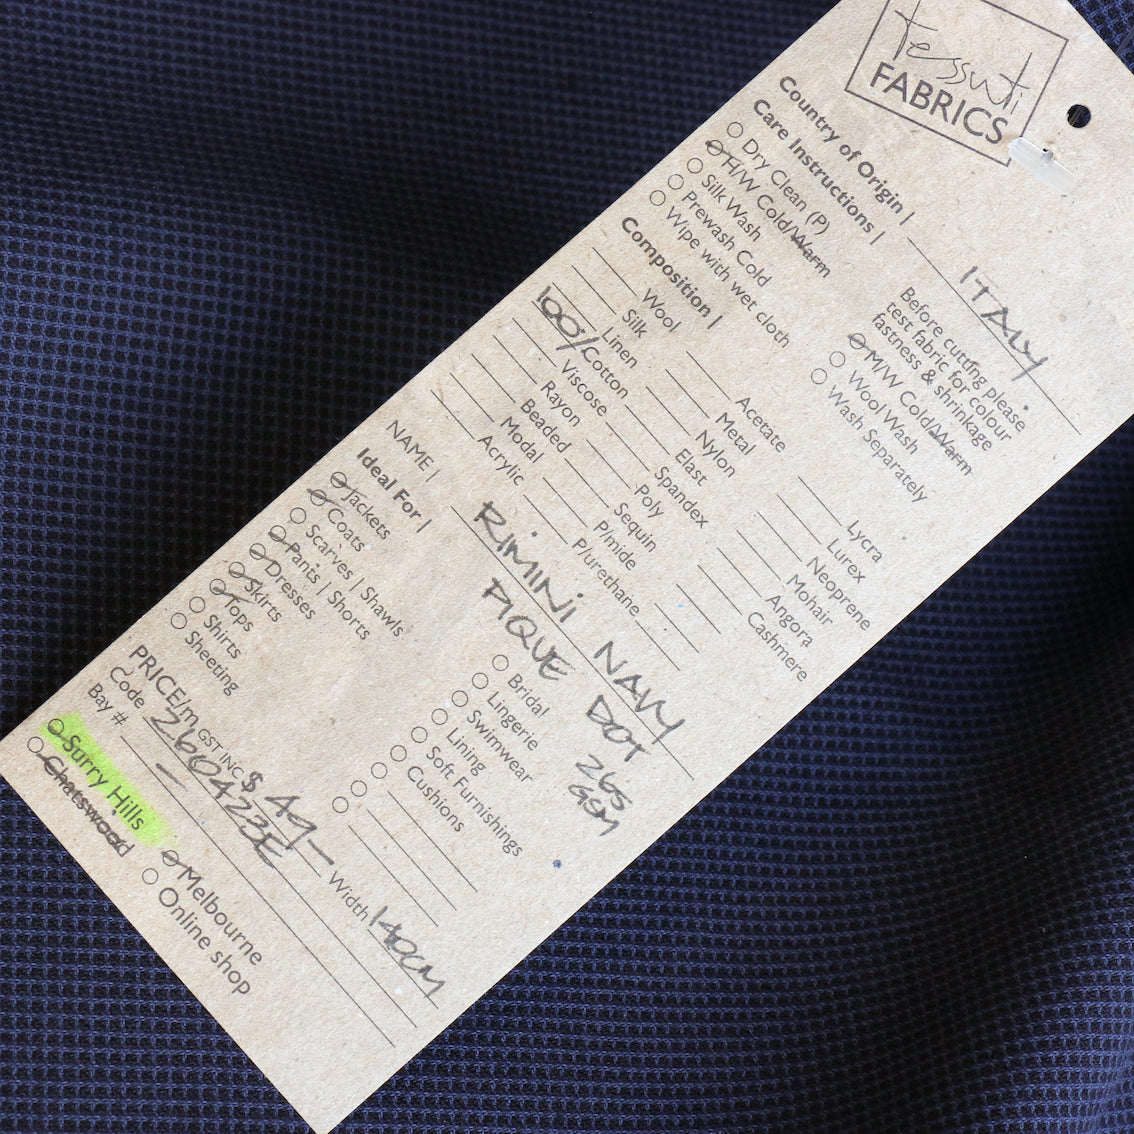 tessuti
FABRICS
Country of Origin | ITALY
Care Instructions |
Dry Clean (P)
H/W Cold/Warm
Silk Wash
Prewash Cold
Wipe with wet cloth
Before cutting please
test fabric for colour
fastness & shrinkage
M/W Cold/Warm
Wool Wash
Wash Separately
Composition |
Wool
Silk
Linen
100% Cotton
Viscose
Rayon
Beaded
Modal
Acrylic
Acetate
Metal
Nylon
Elast
Spandex
Poly
Sequin
P/mide
P/urethane
Lycra
Lurex
Neoprene
Mohair
Angora
Cashmere
NAME | RIMINI NAVY
PIQUE DOT
265
GSM
Ideal For |
Jackets
Coats
Scarves | Shawls
Pants | Shorts
Dresses
Skirts
Tops
Shirts
Sheeting
Bridal
Lingerie
Swimwear
Lining
Soft Furnishings
Cushions
PRICE/m GST INC $ 49- Width 140CM
Code 260423E
Bay # -
Surry Hills
Chatswood
Melbourne
Online shop